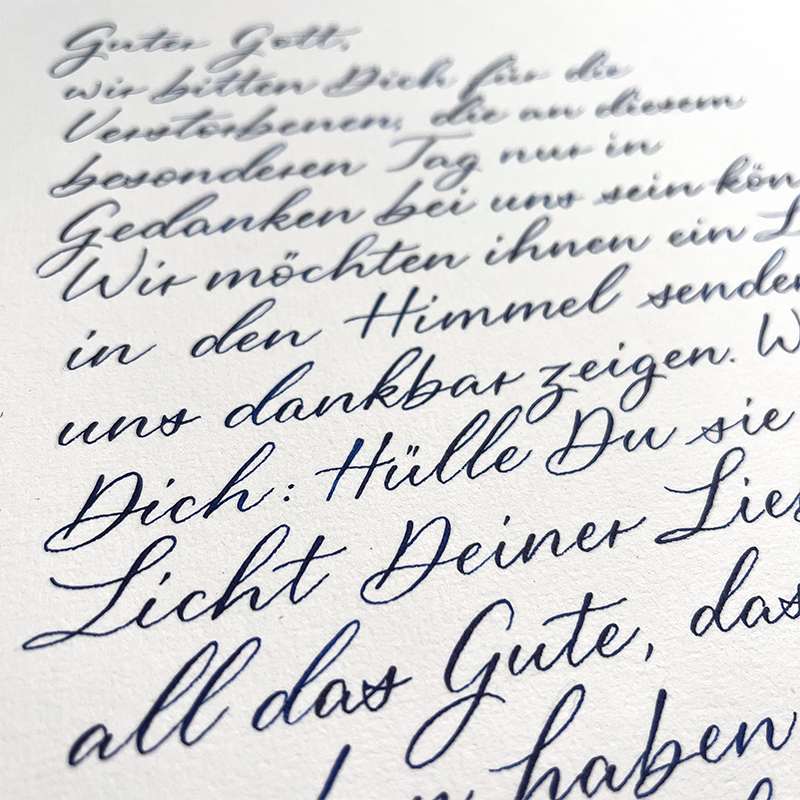 Guter Gott,
wir bitten Dich für die
Verstorbenen, die an diesem
besonderen Tag nur in
Gedanken bei uns sein kön
Wir möchten ihnen ein L
in den Himmel senden
uns dankbar zeigen. W
Dich: Hülle Du sie
Licht Deiner Lie
all das Gute, das
haben